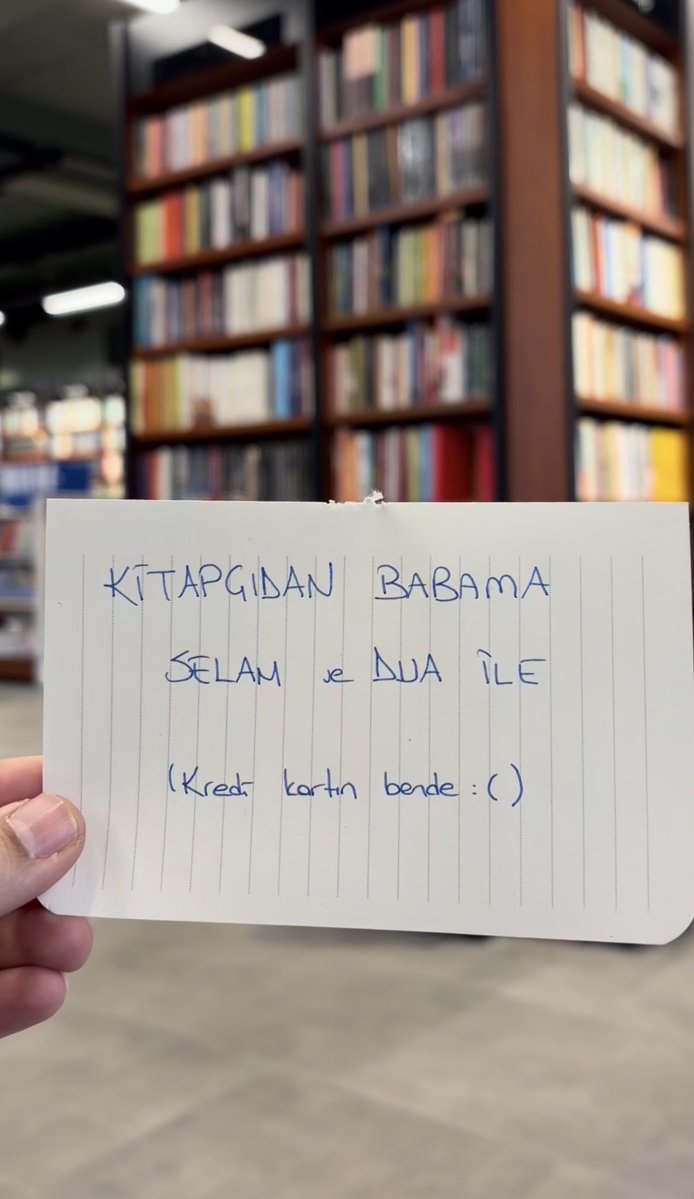 KİTAPÇIDAN BABAMA
SELAM ve DUA İLE
(Kredi kartın bende :( )